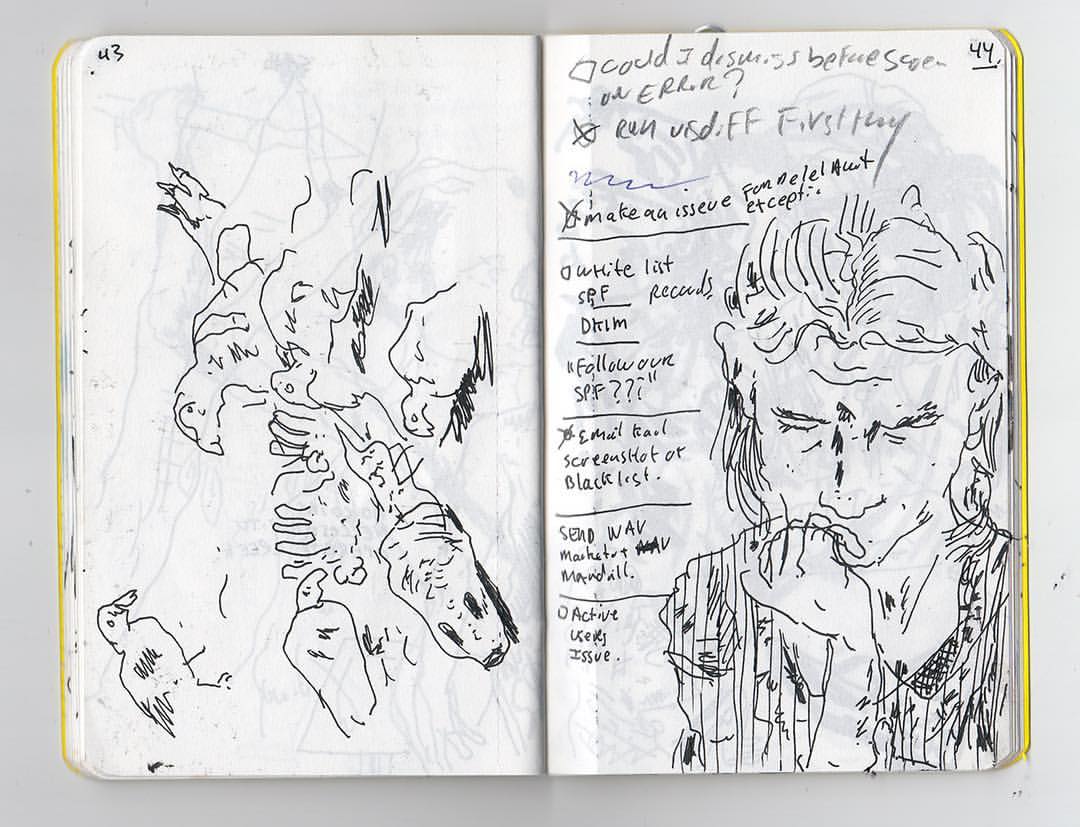 43
44.
could I dismiss before screen
on ERROR?
Run visdiff First thing
make an issue
For
except
white list
SPF Records
DKIM
"Follow our
SPF???"
Email
screenshot of
Blacklist.
SEND WAV
Mandrill.
Active
users
Issue.